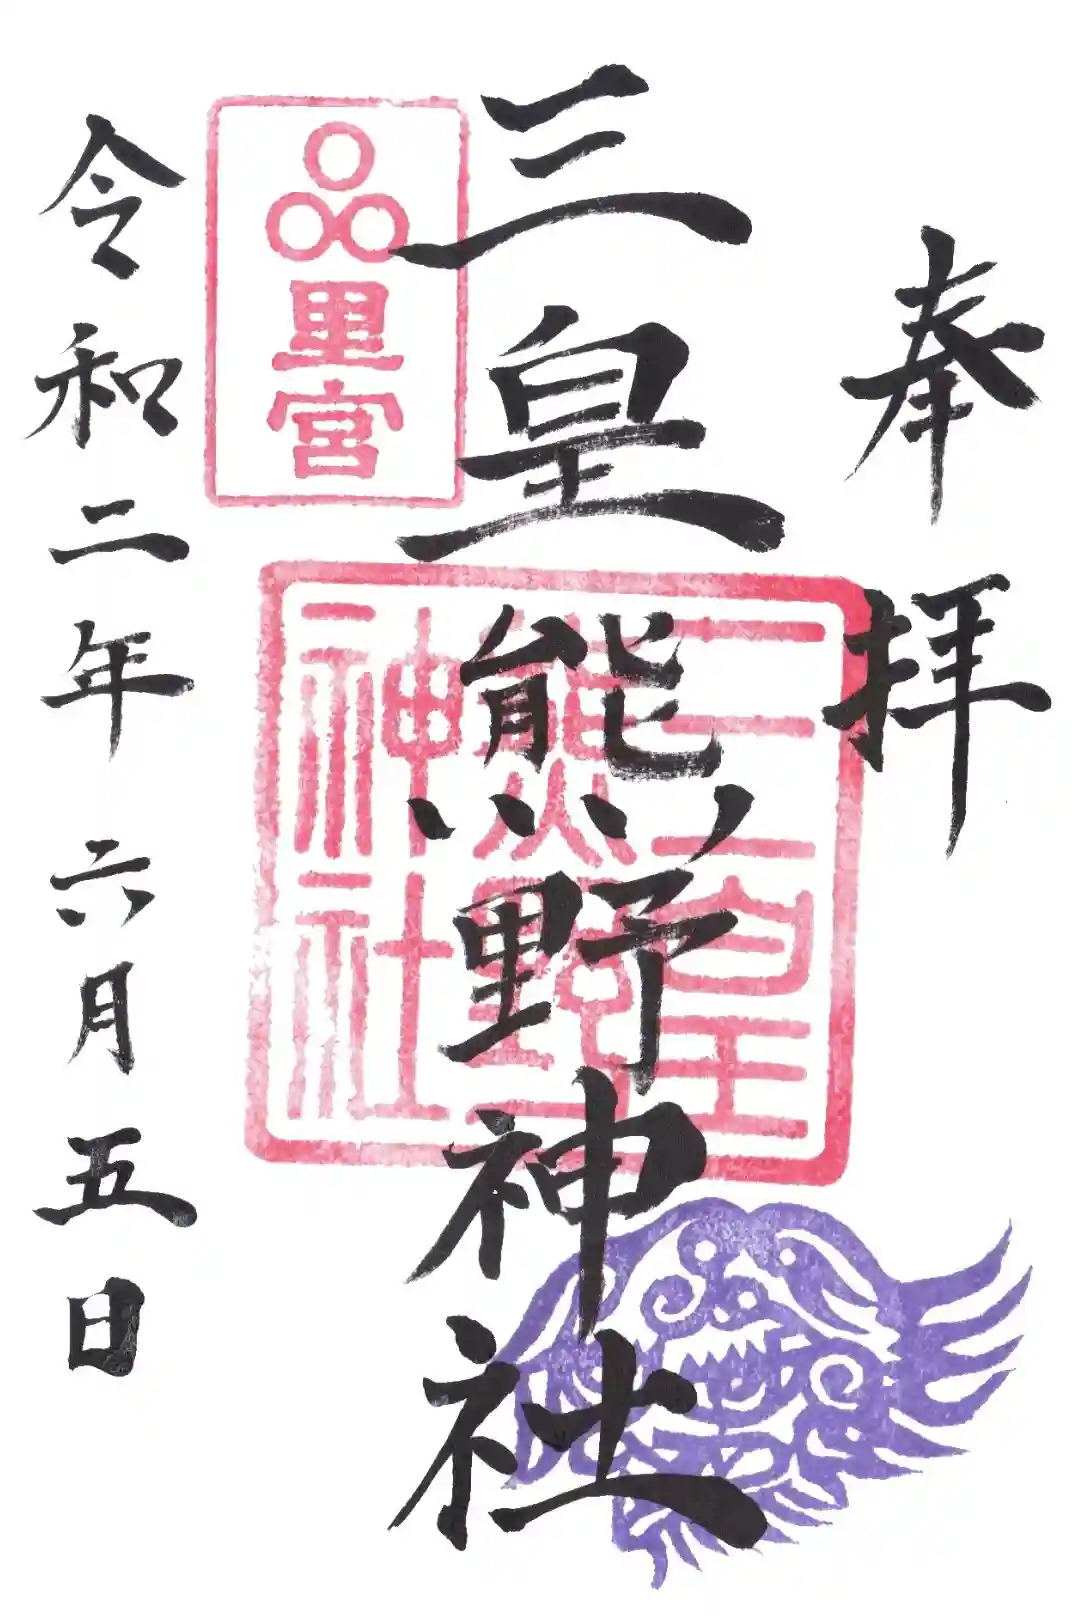 奉拝
三皇熊野神社
里宮
三皇
熊野
神社
令和二年 六月 五日